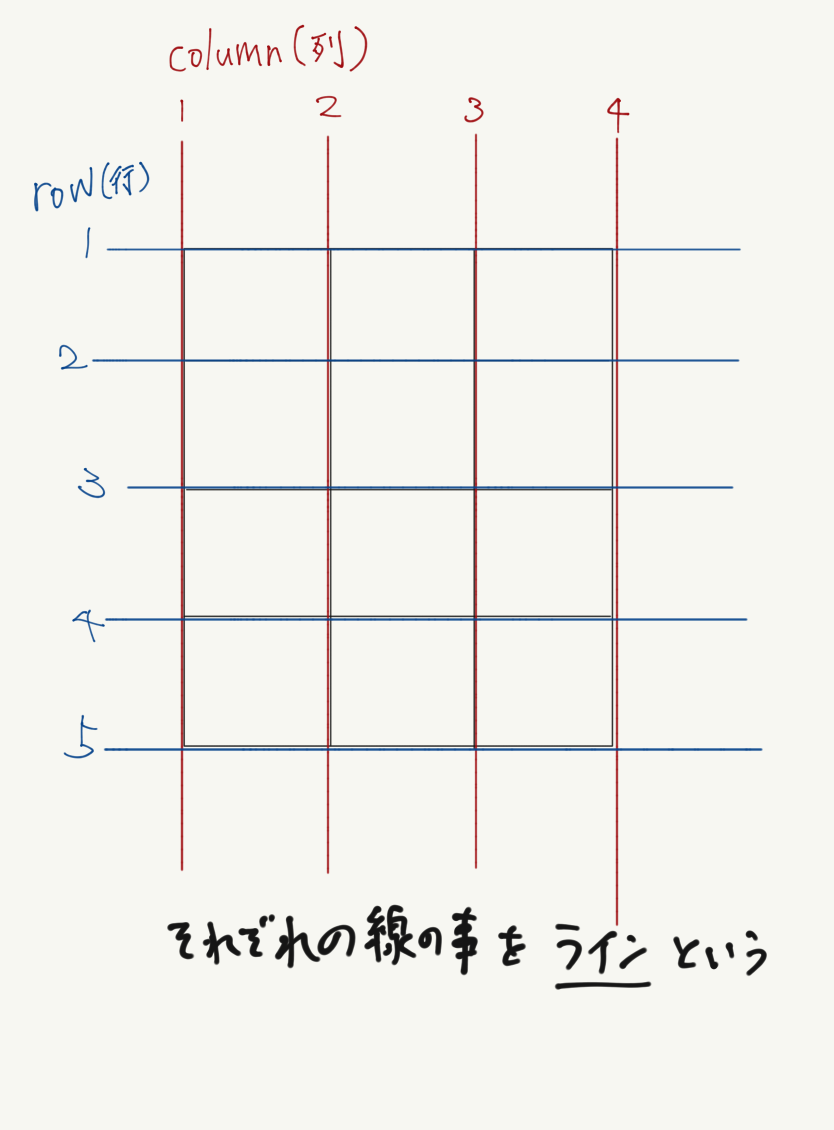 column(列)
1 2 3 4
row(行)
1
2
3
4
5
それぞれの線の事をラインという